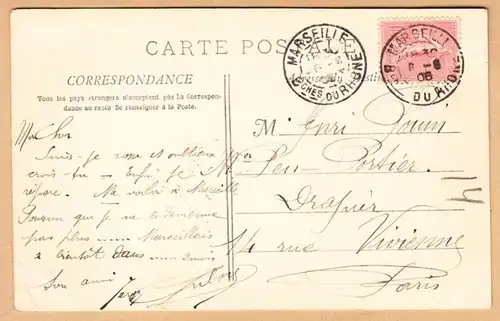 CARTE POSTALE
MARSEILLE
BCHES DU RHONE
MARSEILLE
8-8
06
DU RHONE
CORRESPONDANCE
Tous les pays étrangers n'acceptent pas la Correspon-
dance au recto Se renseigner à la Poste.
M Henri
Mon cher
Suis-je rosse et oublieux
crois-tu - Enfin je
répare. Me voilà à Marseille
Pourvu que je ne devienne
pas plus Marseillais
à bientôt dans 2 mois
Ton ami
Peu Portier
Drapier
14 rue Vivienne
Paris